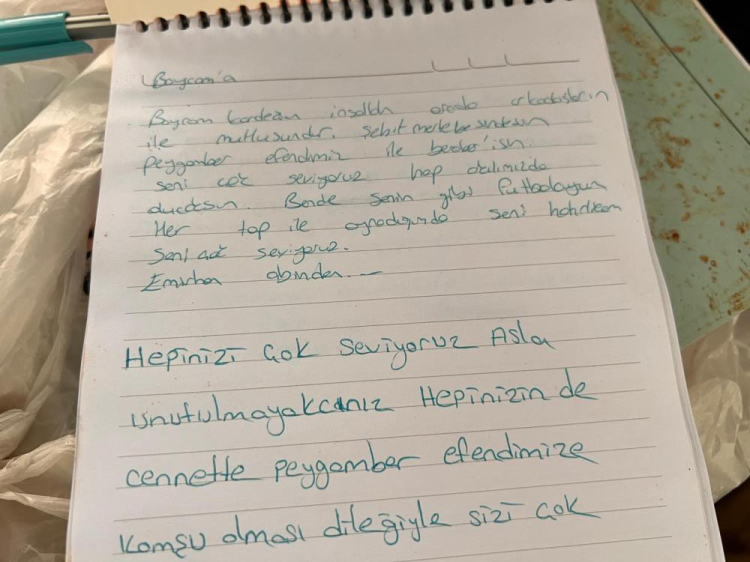 Bayram'a
Bayram kardeşim inşallah orada arkadaşların
ile mutlusundur. Şehit mertebesindesin
peygamber efendimiz ile beraber'isn.
seni çok seviyoruz hep aklımızda
duadasın. Bende senin gibi futbolcuyum
Her top ile oynadığımda seni
Seni çok seviyoruz.
Emirhan abinden.
Hepinizi çok seviyoruz Asla
unutulmayakcanız Hepinizin de
cennette peygamber efendimize
komşu olması dileğiyle sizi çok